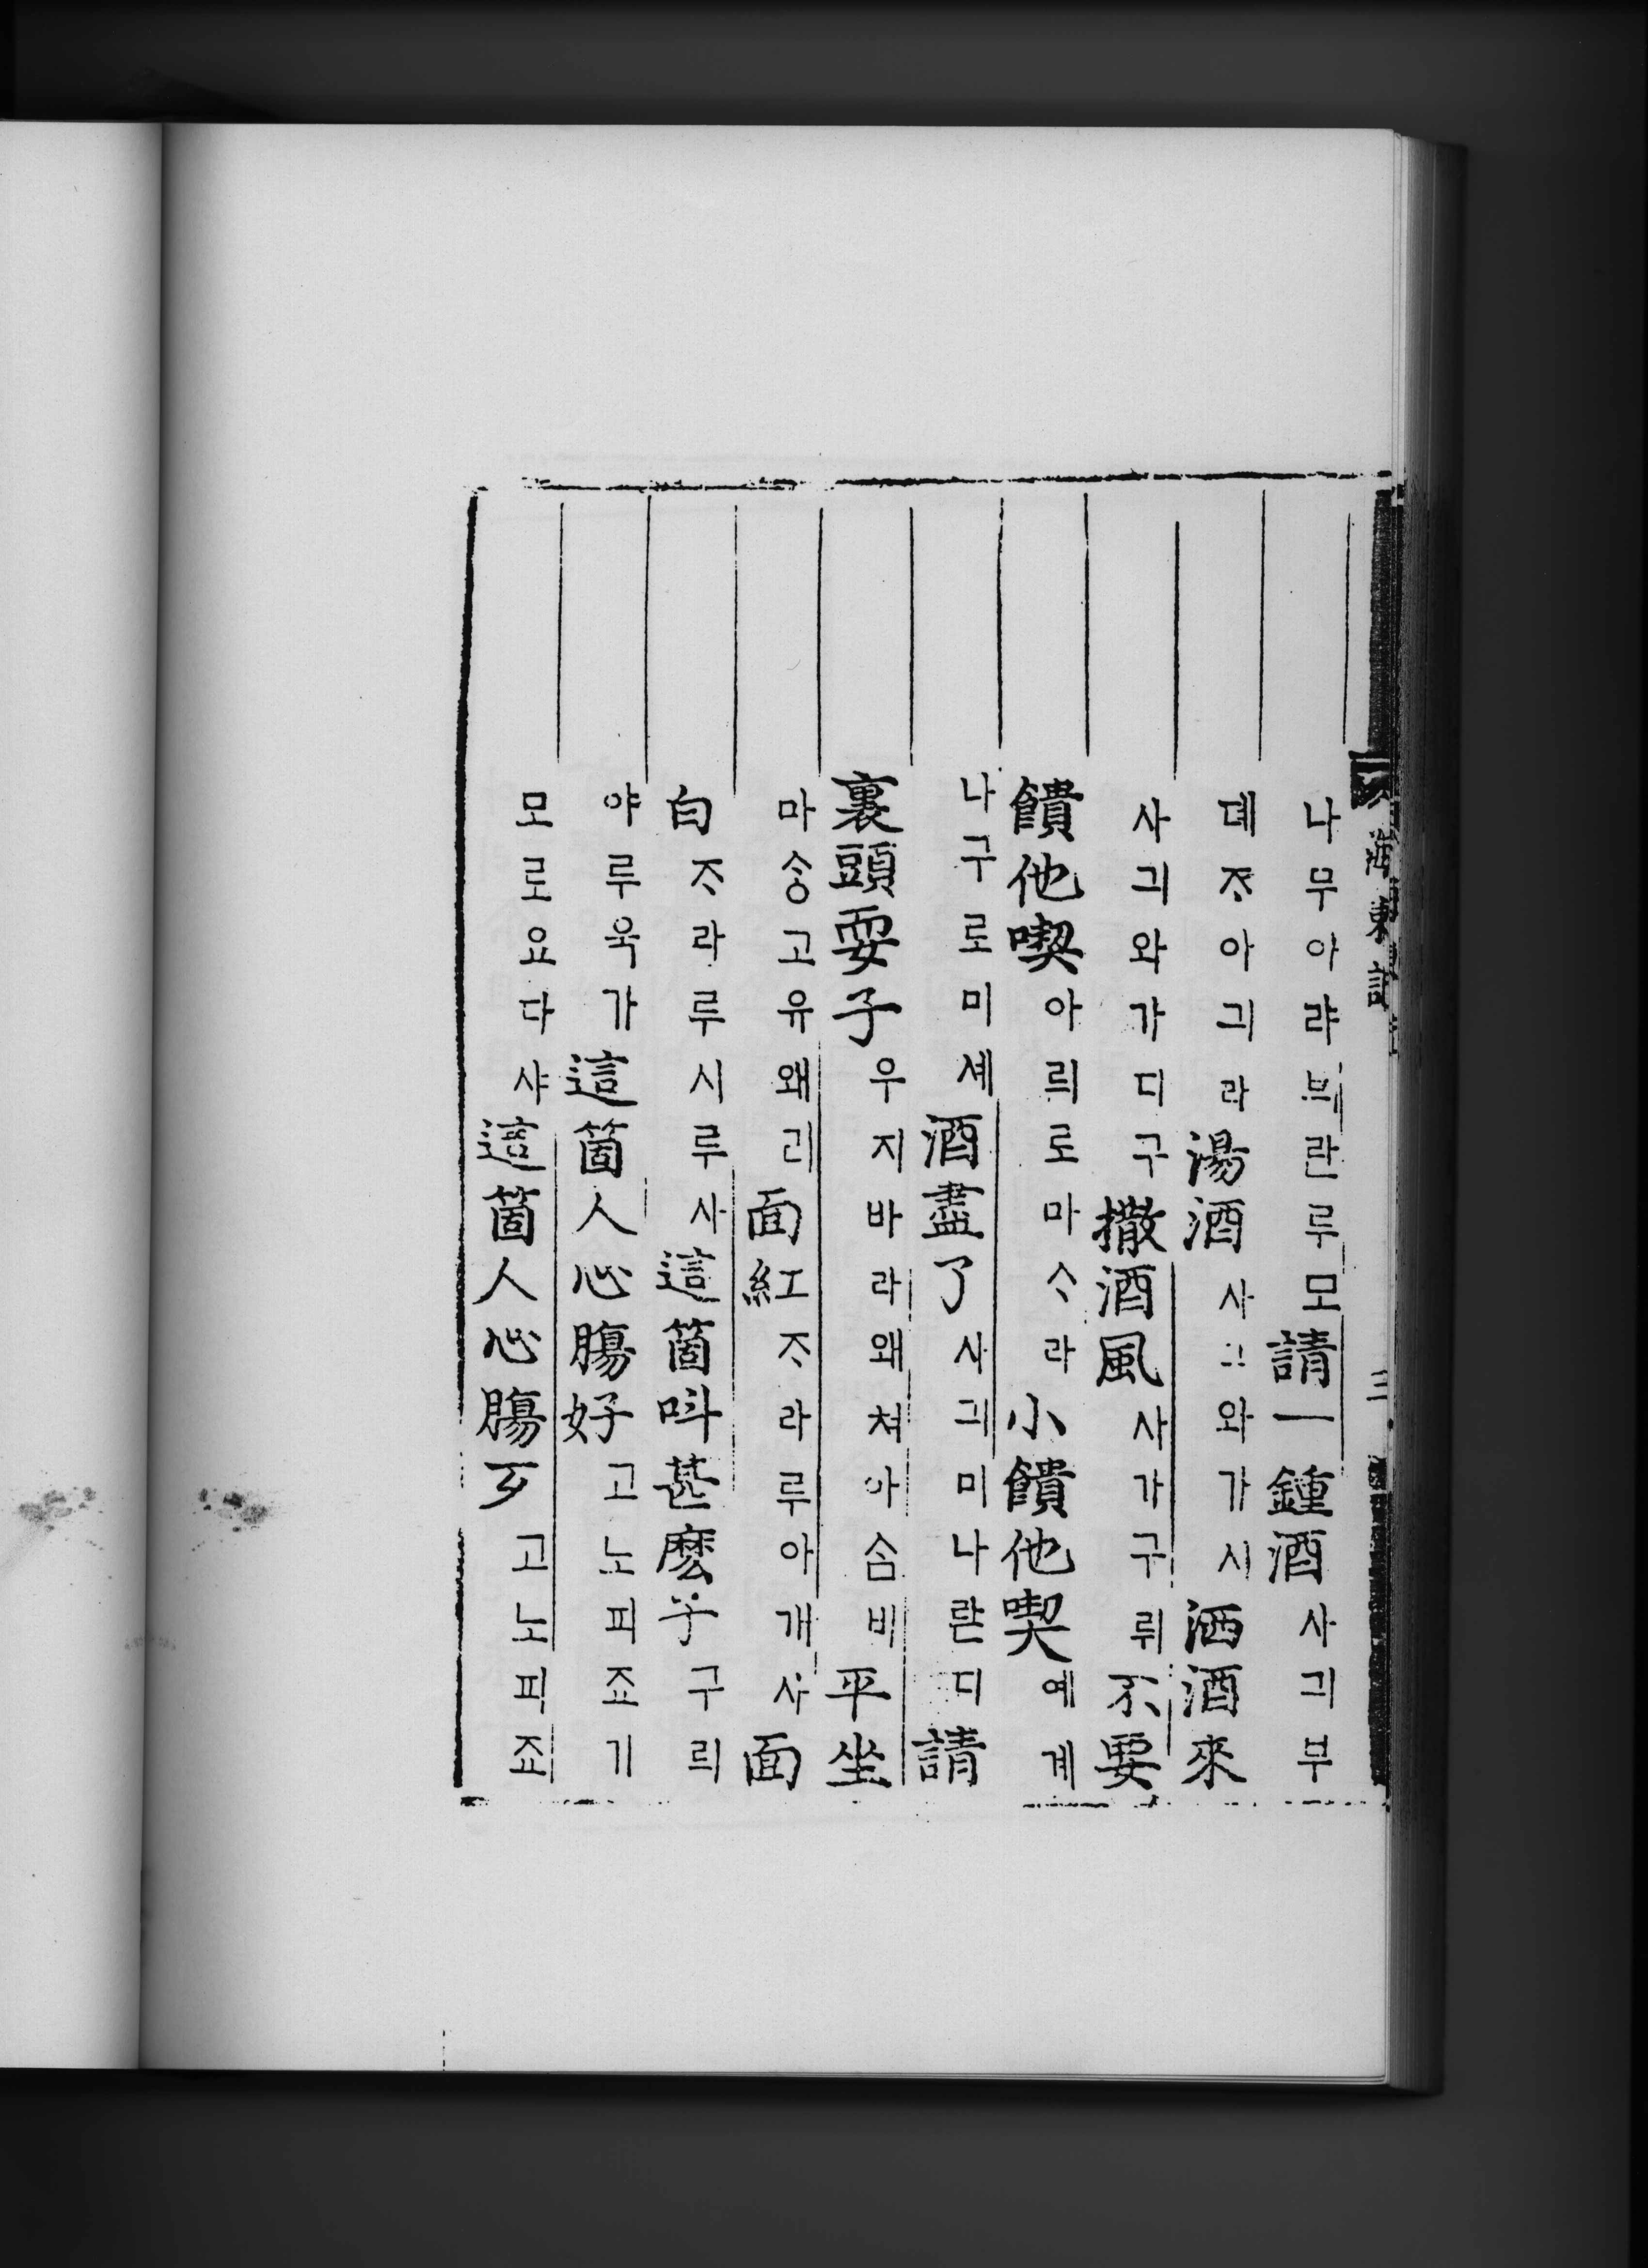 海東記 三
나무아랴븨란루모請一鍾酒사긔부
뎨ᄌᆞ아긔라湯酒사긔와가시洒酒來
사긔와가디구撒酒風사가구뤼不要
饋他喫아릐로마ᄉᆞ라小饋他喫예계
나구로미셰酒盡了사긔미나란디請
裏頭耍子우지바라왜쳐아ᄉᆞᆷ비平坐
마ᄉᆞᇰ고유왜리面紅ᄌᆞ라루아개사面
白ᄌᆞ라루시루사這箇呌甚麽子구릐
야루욱가這箇人心膓好고노피죠기
모로요다샤這箇人心膓歹고노피죠